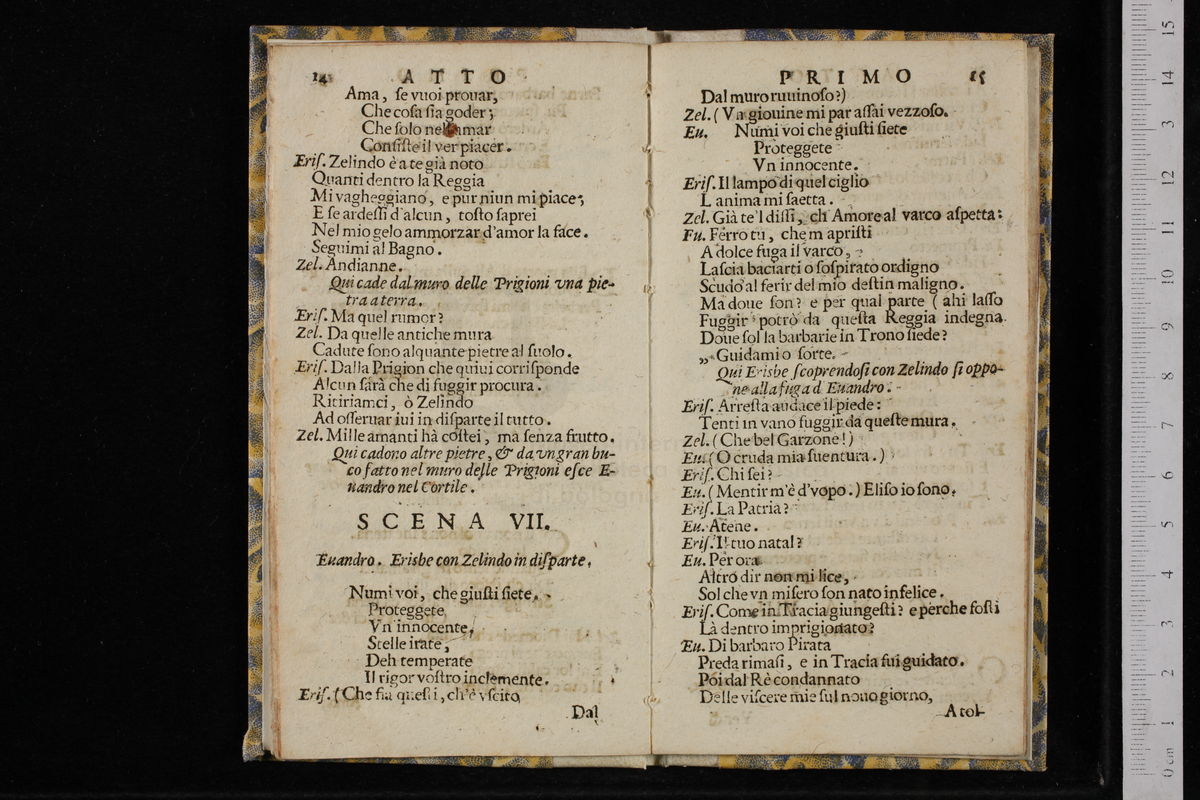 14 ATTO
Ama, ſe vuoi prouar,
Che coſa ſia goder;
Che ſolo nel amar
Conſiſte il ver piacer.
Eriſ. Zelindo è a te già noto
Quanti dentro la Reggia
Mi vagheggiano, e pur niun mi piace;
E ſe ardeſſi d'alcun, toſto ſaprei
Nel mio gelo ammorzar d'amor la face.
Seguimi al Bagno.
Zel. Andianne.
Qui cade dal muro delle Prigioni vna pie-
tra a terra.
Eriſ. Ma quel rumor?
Zel. Da quelle antiche mura
Cadute ſono alquante pietre al ſuolo.
Eriſ. Dalla Prigion che quiui corriſponde
Alcun ſarà che di fuggir procura.
Ritiriamci, ò Zelindo
Ad oſſeruar iui in diſparte il tutto.
Zel. Mille amanti hà coſtei, ma ſenza frutto.
Qui cadono altre pietre, & da vn gran bu-
co fatto nel muro delle Prigioni eſce E-
uandro nel Cortile.
SCENA VII.
Euandro. Erisbe con Zelindo in diſparte.
Numi voi, che giuſti ſiete,
Proteggete
Vn innocente,
Stelle irate,
Deh temperate
Il rigor voſtro inclemente.
Eriſ. (Che fia queſti, ch'è vſcito
Dal
PRIMO 15
Dal muro ruuinoſo?)
Zel. (Vn giouine mi par aſſai vezzoſo.
Eu. Numi voi che giuſti ſiete
Proteggete
Vn innocente.
Eriſ. Il lampo di quel ciglio
L anima mi ſaetta.
Zel. Già te'l diſſi, ch Amore al varco aſpetta:
Eu. Ferro tu, che m apriſti
A dolce fuga il varco,
Laſcia baciarti o ſoſpirato ordigno
Scudo al ferir del mio deſtin maligno.
Ma doue ſon? e per qual parte (ahi laſſo
Fuggir potrò da queſta Reggia indegna
Doue ſol la barbarie in Trono ſiede?
„ Guidami o ſorte.
Qui Erisbe ſcoprendoſi con Zelindo ſi oppo-
ne alla fuga d Euandro.
Eriſ. Arreſta audace il piede:
Tenti in vano fuggir da queſte mura.
Zel. (Che bel Garzone!)
Eu. (O cruda mia ſuentura.)
Eriſ. Chi ſei?
Eu. (Mentir m'è d'vopo.) Eliſo io ſono.
Eriſ. La Patria?
Eu. Atene.
Eriſ. Il tuo natal?
Eu. Per ora
Altro dir non mi lice,
Sol che vn miſero ſon nato infelice.
Eriſ. Come in Tracia giungeſti? e perche foſti
Là dentro imprigionato?
Eu. Di barbaro Pirata
Preda rimaſi, e in Tracia fui guidato.
Poi dal Rè condannato
Delle viſcere mie ſul nouo giorno,
A tol-